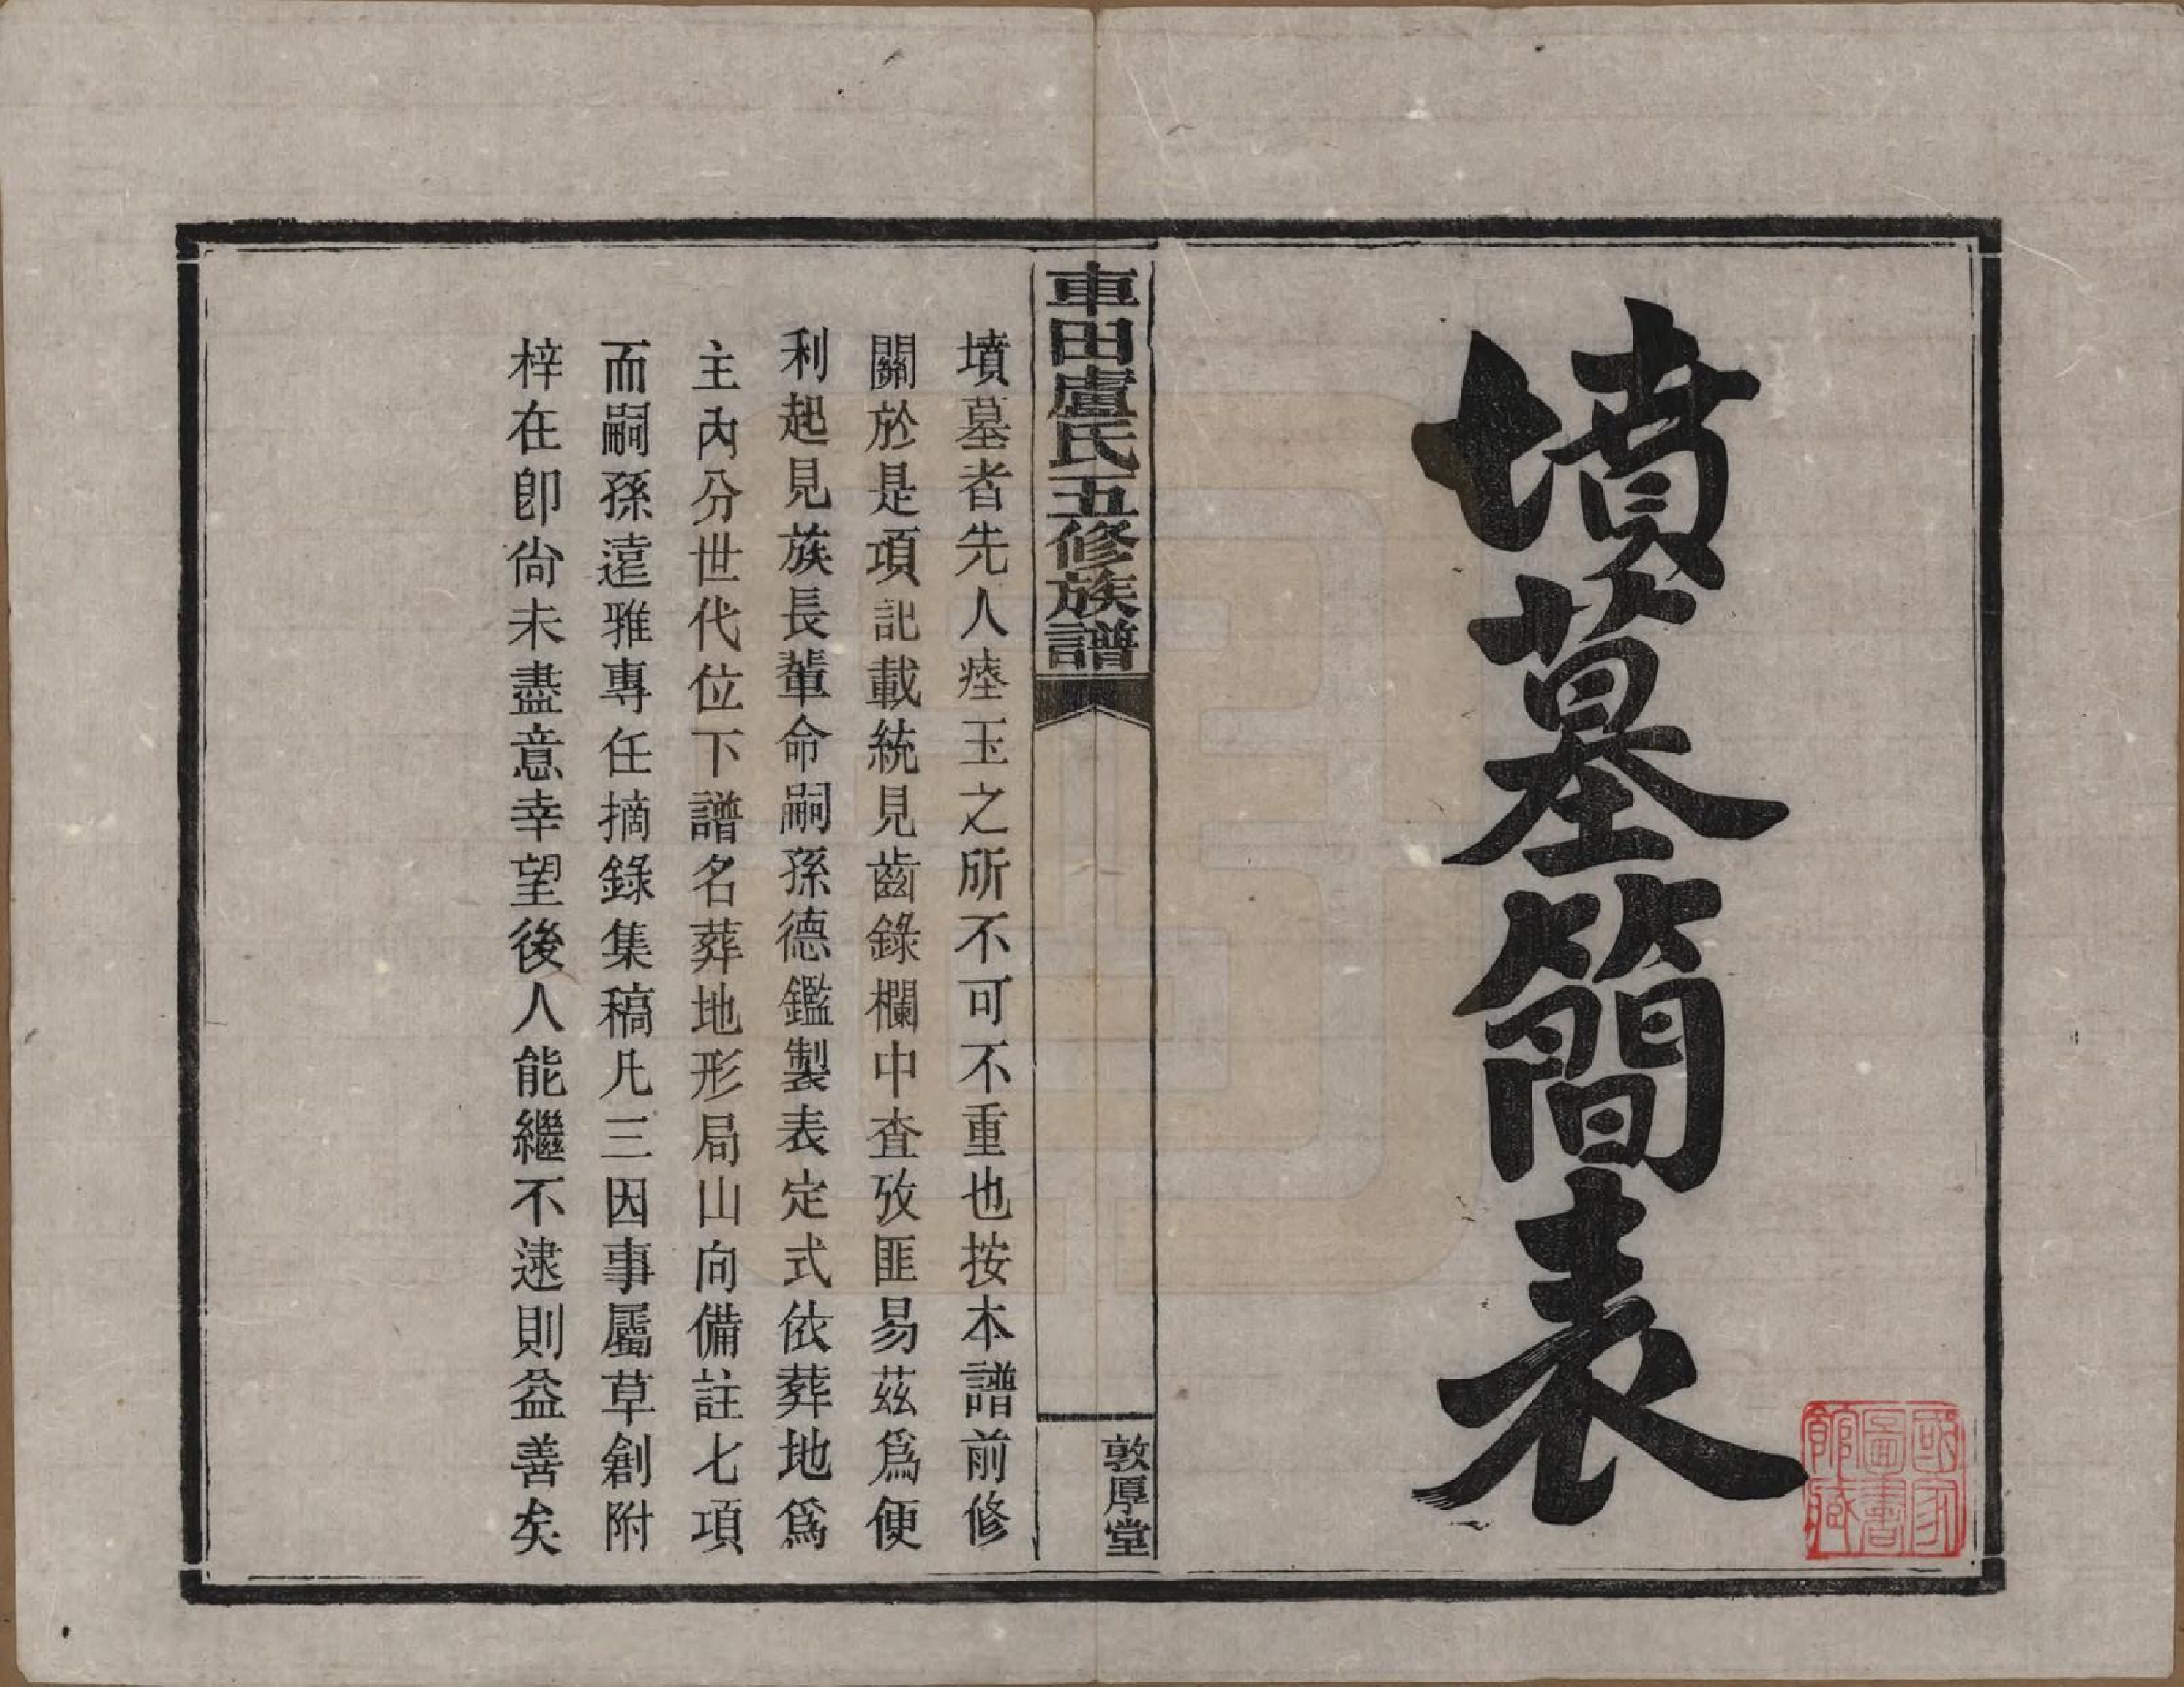 墳墓簡表
國家圖書館藏
車田盧氏五修族譜
敦厚堂
墳墓者先人瘗玉之所不可不重也按本譜前修
關於是項記載統見齒錄欄中查攷匪易茲爲便
利起見族長輩命嗣孫德鑑製表定式依葬地爲
主內分世代位下譜名葬地形局山向備註七項
而嗣孫遠雅專任摘錄集稿凡三因事屬草創附
梓在卽尙未盡意幸望後人能繼不逮則益善矣